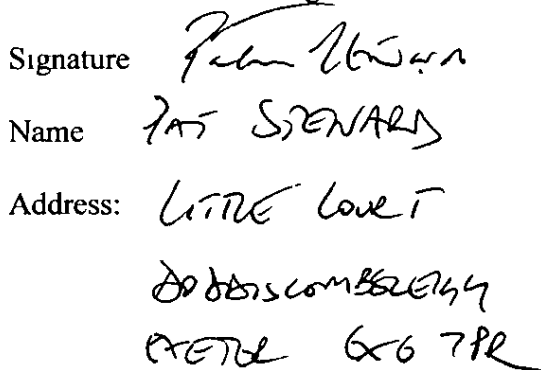 Signature
Name PAT STEWARD
Address: LITTLE COURT
DODDISCOMBSLEIGH
EXETER EX6 7PR